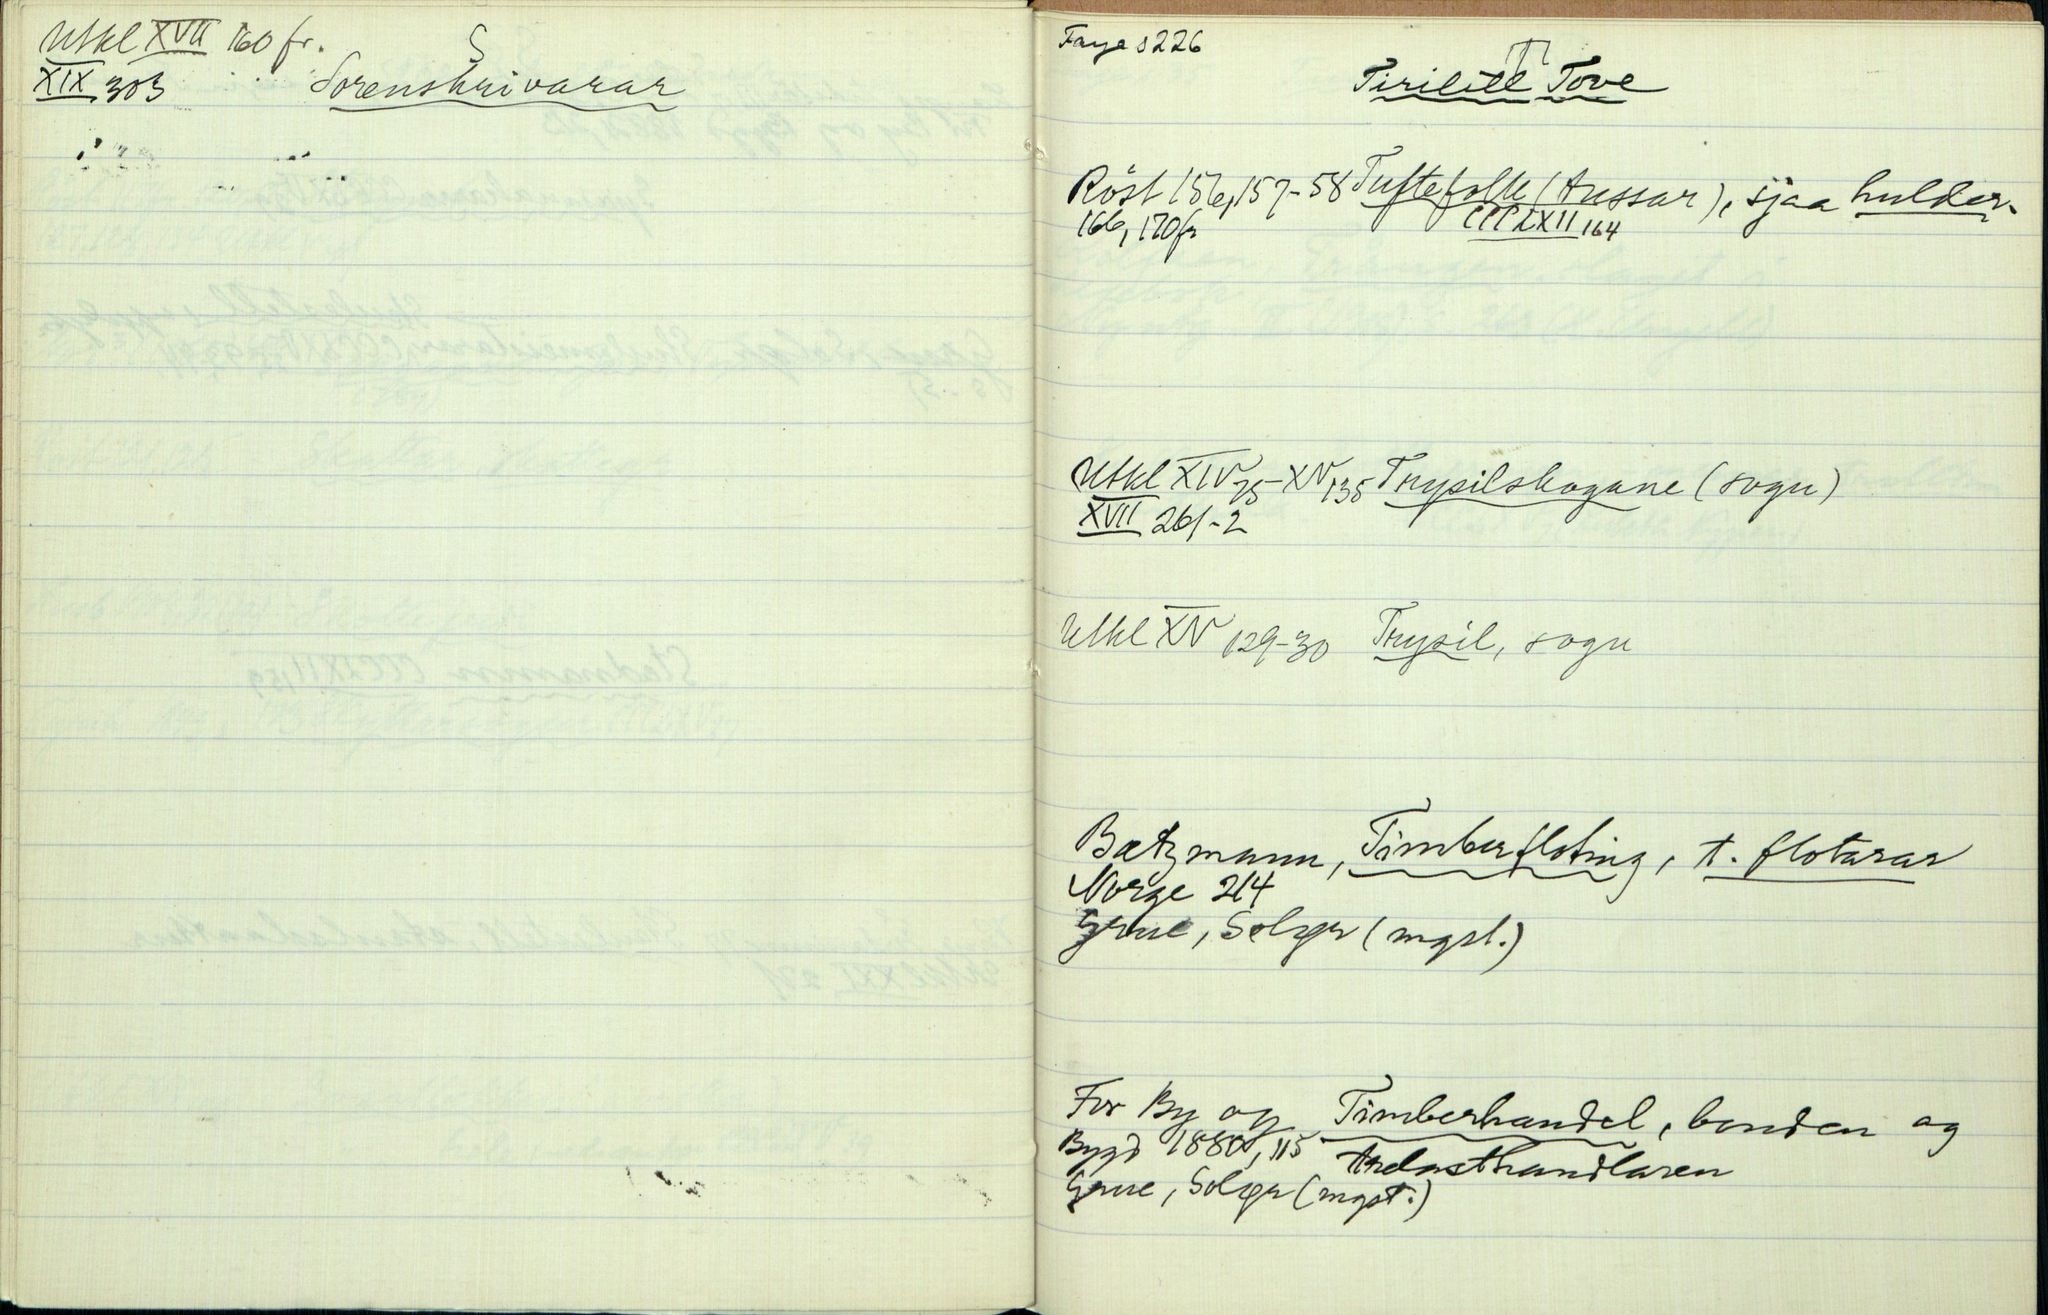 Utkl XVII 160 fr.
S
XIX 303 Sorenskrivarar
Faye s 226
T
Tirilill Tove
Röst 156, 157-58 Tuftefolk (Tussar), sjaa hulder-
166, 170 fr CCCLXII 164
Utkl XIV 75 - XV 135 Trysilskogane (sogu)
XVII 261-2
Utkl XV 129-30 Trysil, sogu
Bætzmann, Timberfloting, t. flotarar
Norge 214
Grue, Solør (mgst.)
For By og Timberhandel, bonden og
Bygd 1880, 115 trelasthandlaren
Grue, Solør (mgst.)